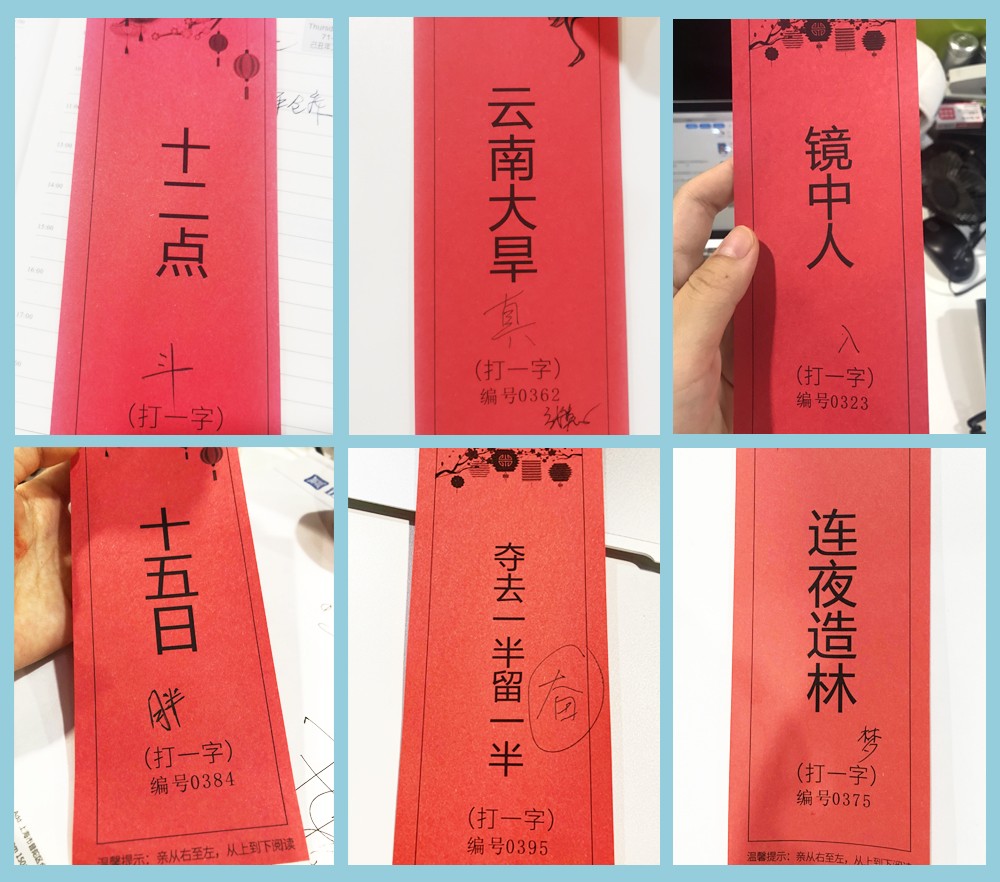 十二点
斗
(打一字)
云南大旱
真
(打一字)
编号0362
镜中人
入
(打一字)
编号0323
十五日
胖
(打一字)
编号0384
温馨提示：亲从右至左，从上到下阅读
夺去一半留一半
奋
(打一字)
编号0395
连夜造林
梦
(打一字)
编号0375
温馨提示：亲从右至左，从上到下阅读